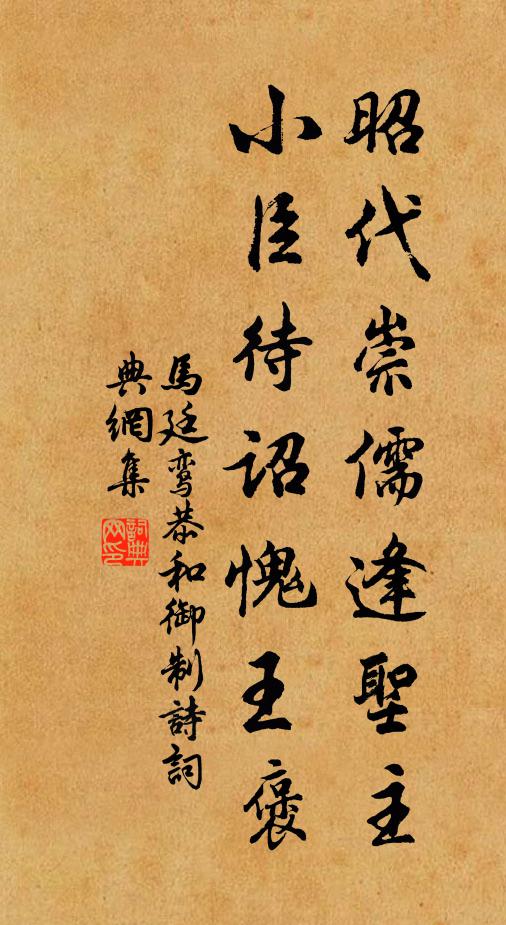 昭代崇儒逢聖主
小臣待詔愧王褒
馬廷鸞恭和御制詩詞
典網集
詞典网印